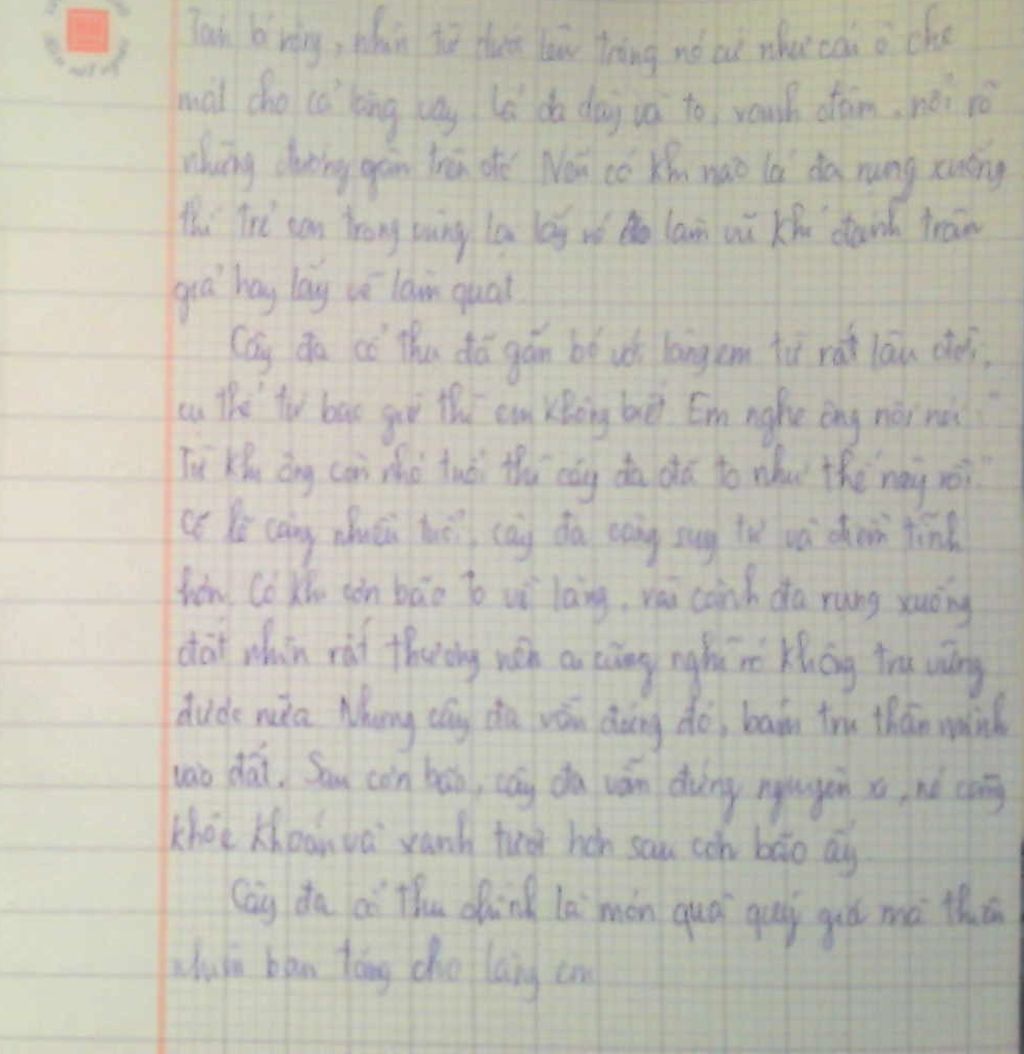 Tán lá rộng, nhìn từ dưới lên trông nó cứ như cái ô che
mát cho cả làng vậy. Lá đa dày và to, xanh đậm, nổi rõ
những đường gân trên đó. Nếu có khi nào lá đa rụng xuống
thì trẻ con trong vùng lại lấy nó làm vũ khí đánh trận
giả hay lấy về làm quạt.
Cây đa cổ thụ đã gắn bó với làng em từ rất lâu đời,
cụ thể từ bao giờ thì em không biết. Em nghe ông nội nói: "
Từ khi ông còn nhỏ tuổi thì cây đa đã to như thế này rồi."
Có lẽ càng nhiều tuổi, cây đa càng suy tư và điềm tĩnh
hơn. Có khi cơn bão to về làng, vài cành đa rụng xuống
đất nhìn rất thương nên ai cũng nghĩ nó không trụ vững
được nữa. Nhưng cây đa vẫn đứng đó, bám trụ thân mình
vào đất. Sau cơn bão, cây đa vẫn đứng nguyên xi, nó càng
khỏe khoắn và xanh tươi hơn sau cơn bão ấy.
Cây đa cổ thụ chính là món quà quý giá mà thiên
nhiên ban tặng cho làng em